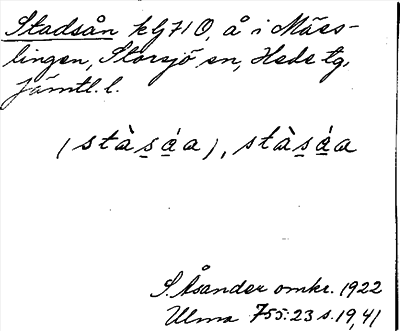 Stadsån kg710, å i Mäss-
lingen, Storsjö sn, Hede tg,
Jämtl. l.
(stàs̲á̲a), stàs̲á̲a
S. Åsander omkr. 1922
Ulma 755:23 s. 19, 41